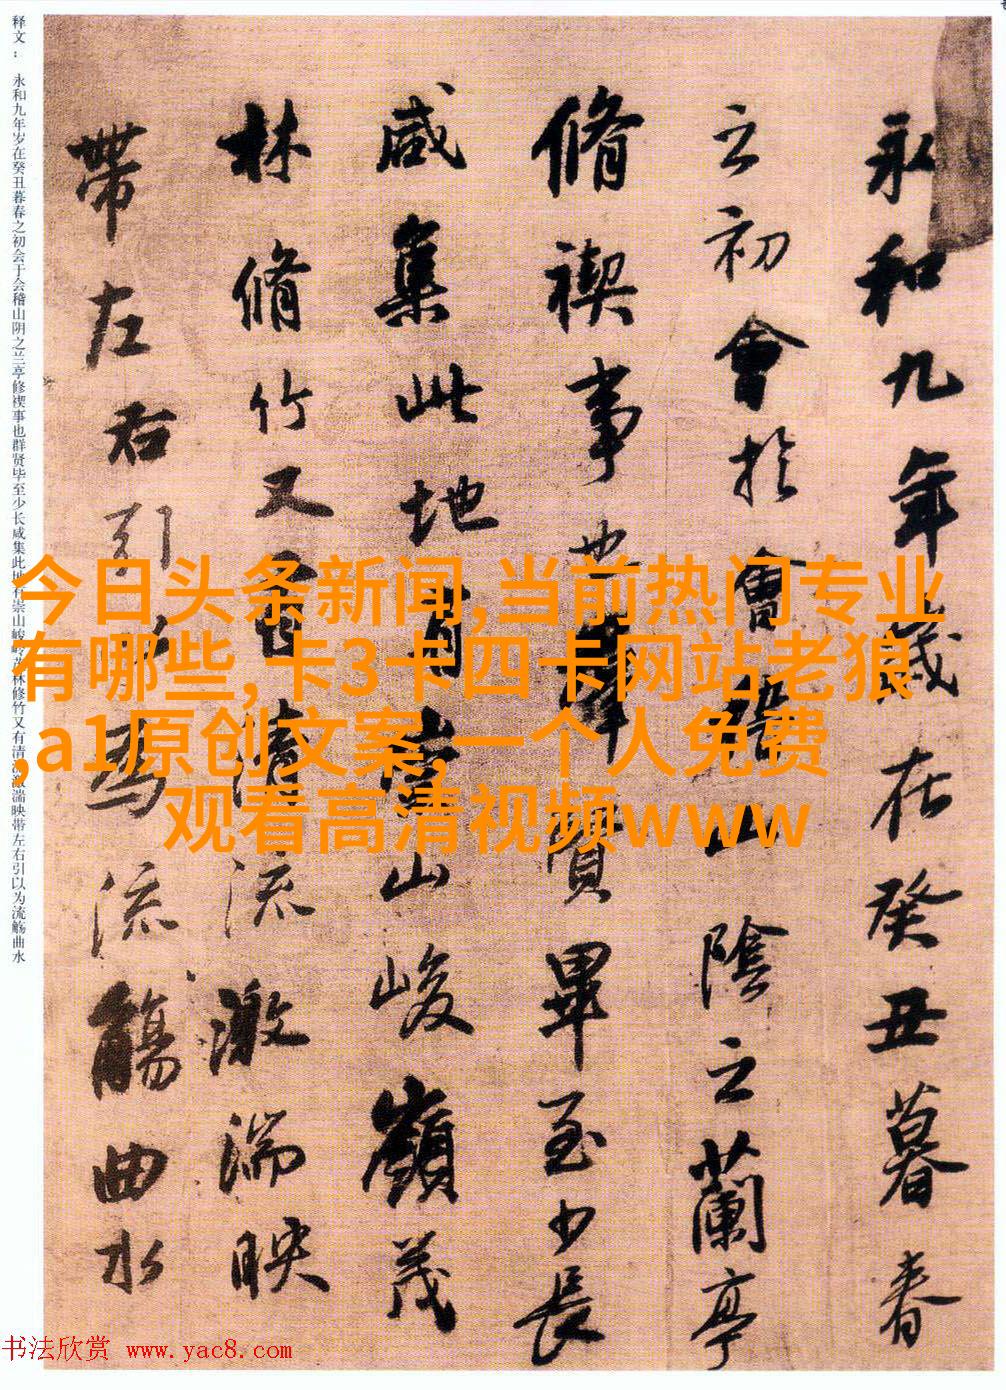 永和九年歲在癸丑暮春
之初會於會稽山陰之蘭亭
脩禊事也羣賢畢至少長
咸集此地有崇山峻嶺茂
林脩竹又有清流激湍映
帶左右引以爲流觴曲水
释文： 永和九年岁在癸丑暮春之初会于会稽山阴之兰亭修禊事也群贤毕至少长咸集此地有崇山峻岭茂林修竹又有清流激湍映带左右引以为流觞曲水
今日头条新闻,当前热门专业
有哪些,卡3卡四卡网站老狼
,a1原创文案,一个人免费
观看高清视频www
书法欣赏 www.yac8.com